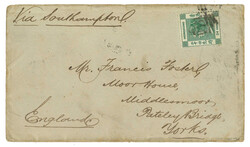 Via Southampton
Mr. Francis Foster
Moor House,
Middlesmoor,
Pateley Bridge,
England
Yorks.